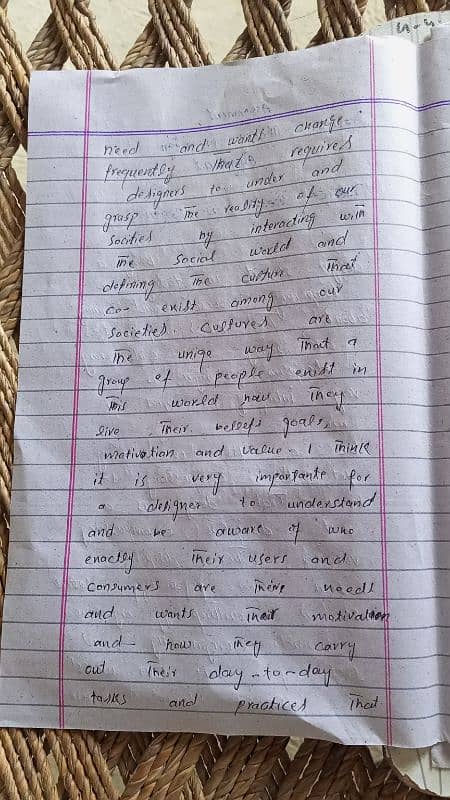 need and wants change
frequently that requires
designers to under and
grasp the reality of our
socities by interacting with
the social world and
defining the culture that
co-exist among our
societies. cultures are
the uniqe way that a
group of people exist in
this world how they
live their beleefs goals,
motivation and value. I think
it is very importante for
a designer to understand
and be aware of who
enactly their users and
consumers are there needs
and wants their motivation
and how they carry
out their day-to-day
tasks and practices that